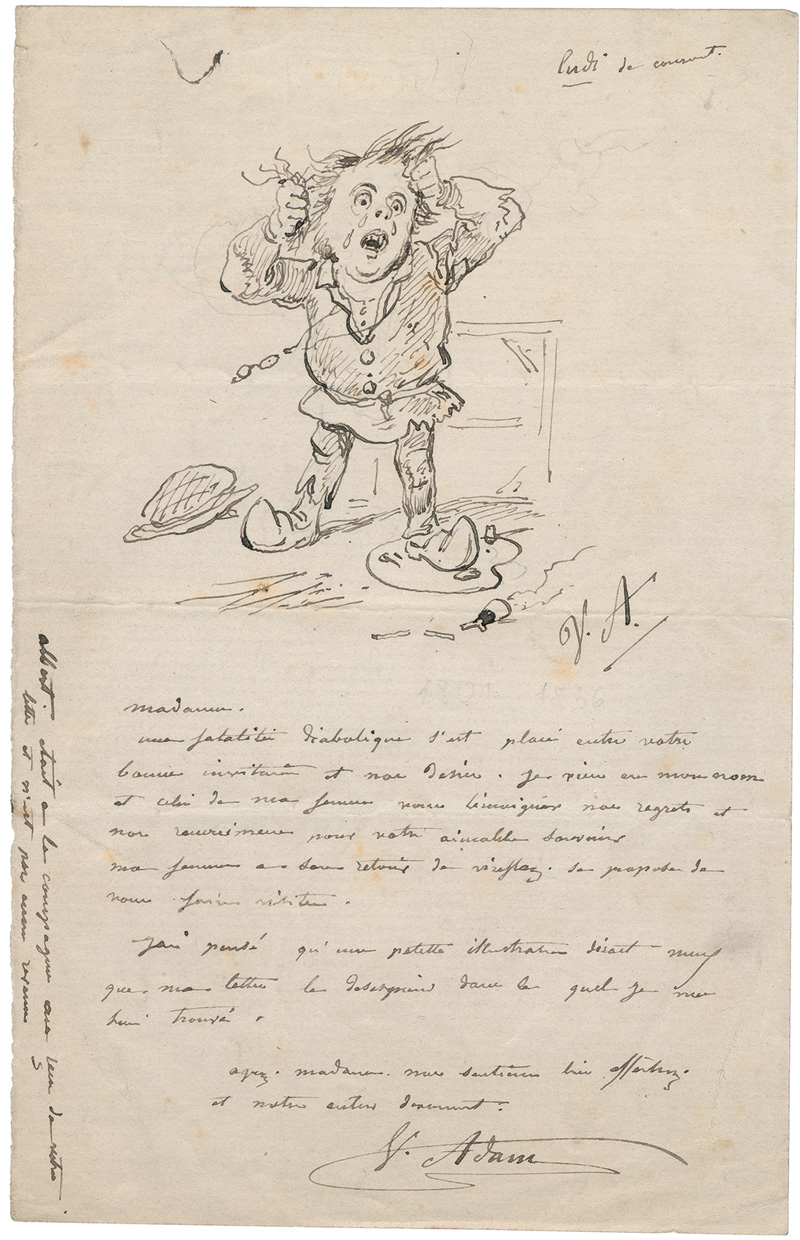 lundi de courant.
V. A.
madame.
une fatalité diabolique s'est placé entre votre
bonne invitation et nos desirs. je viens en mon nom
et celui de ma femme vous témoigner nos regrets et
nos pour votre aimable souvenir
ma femme a son retour de viroflay. se propose de
vous faire visite.
J'ai pensé qu'une petite illustration dirait mieux
que ma lettre le desespoir dans le quel je me
suis trouvé.
madame. nos
et notre entier devoument.
V. Adam
albert était a la campagne au recu de votre
lettre et n'est pas encore revenu